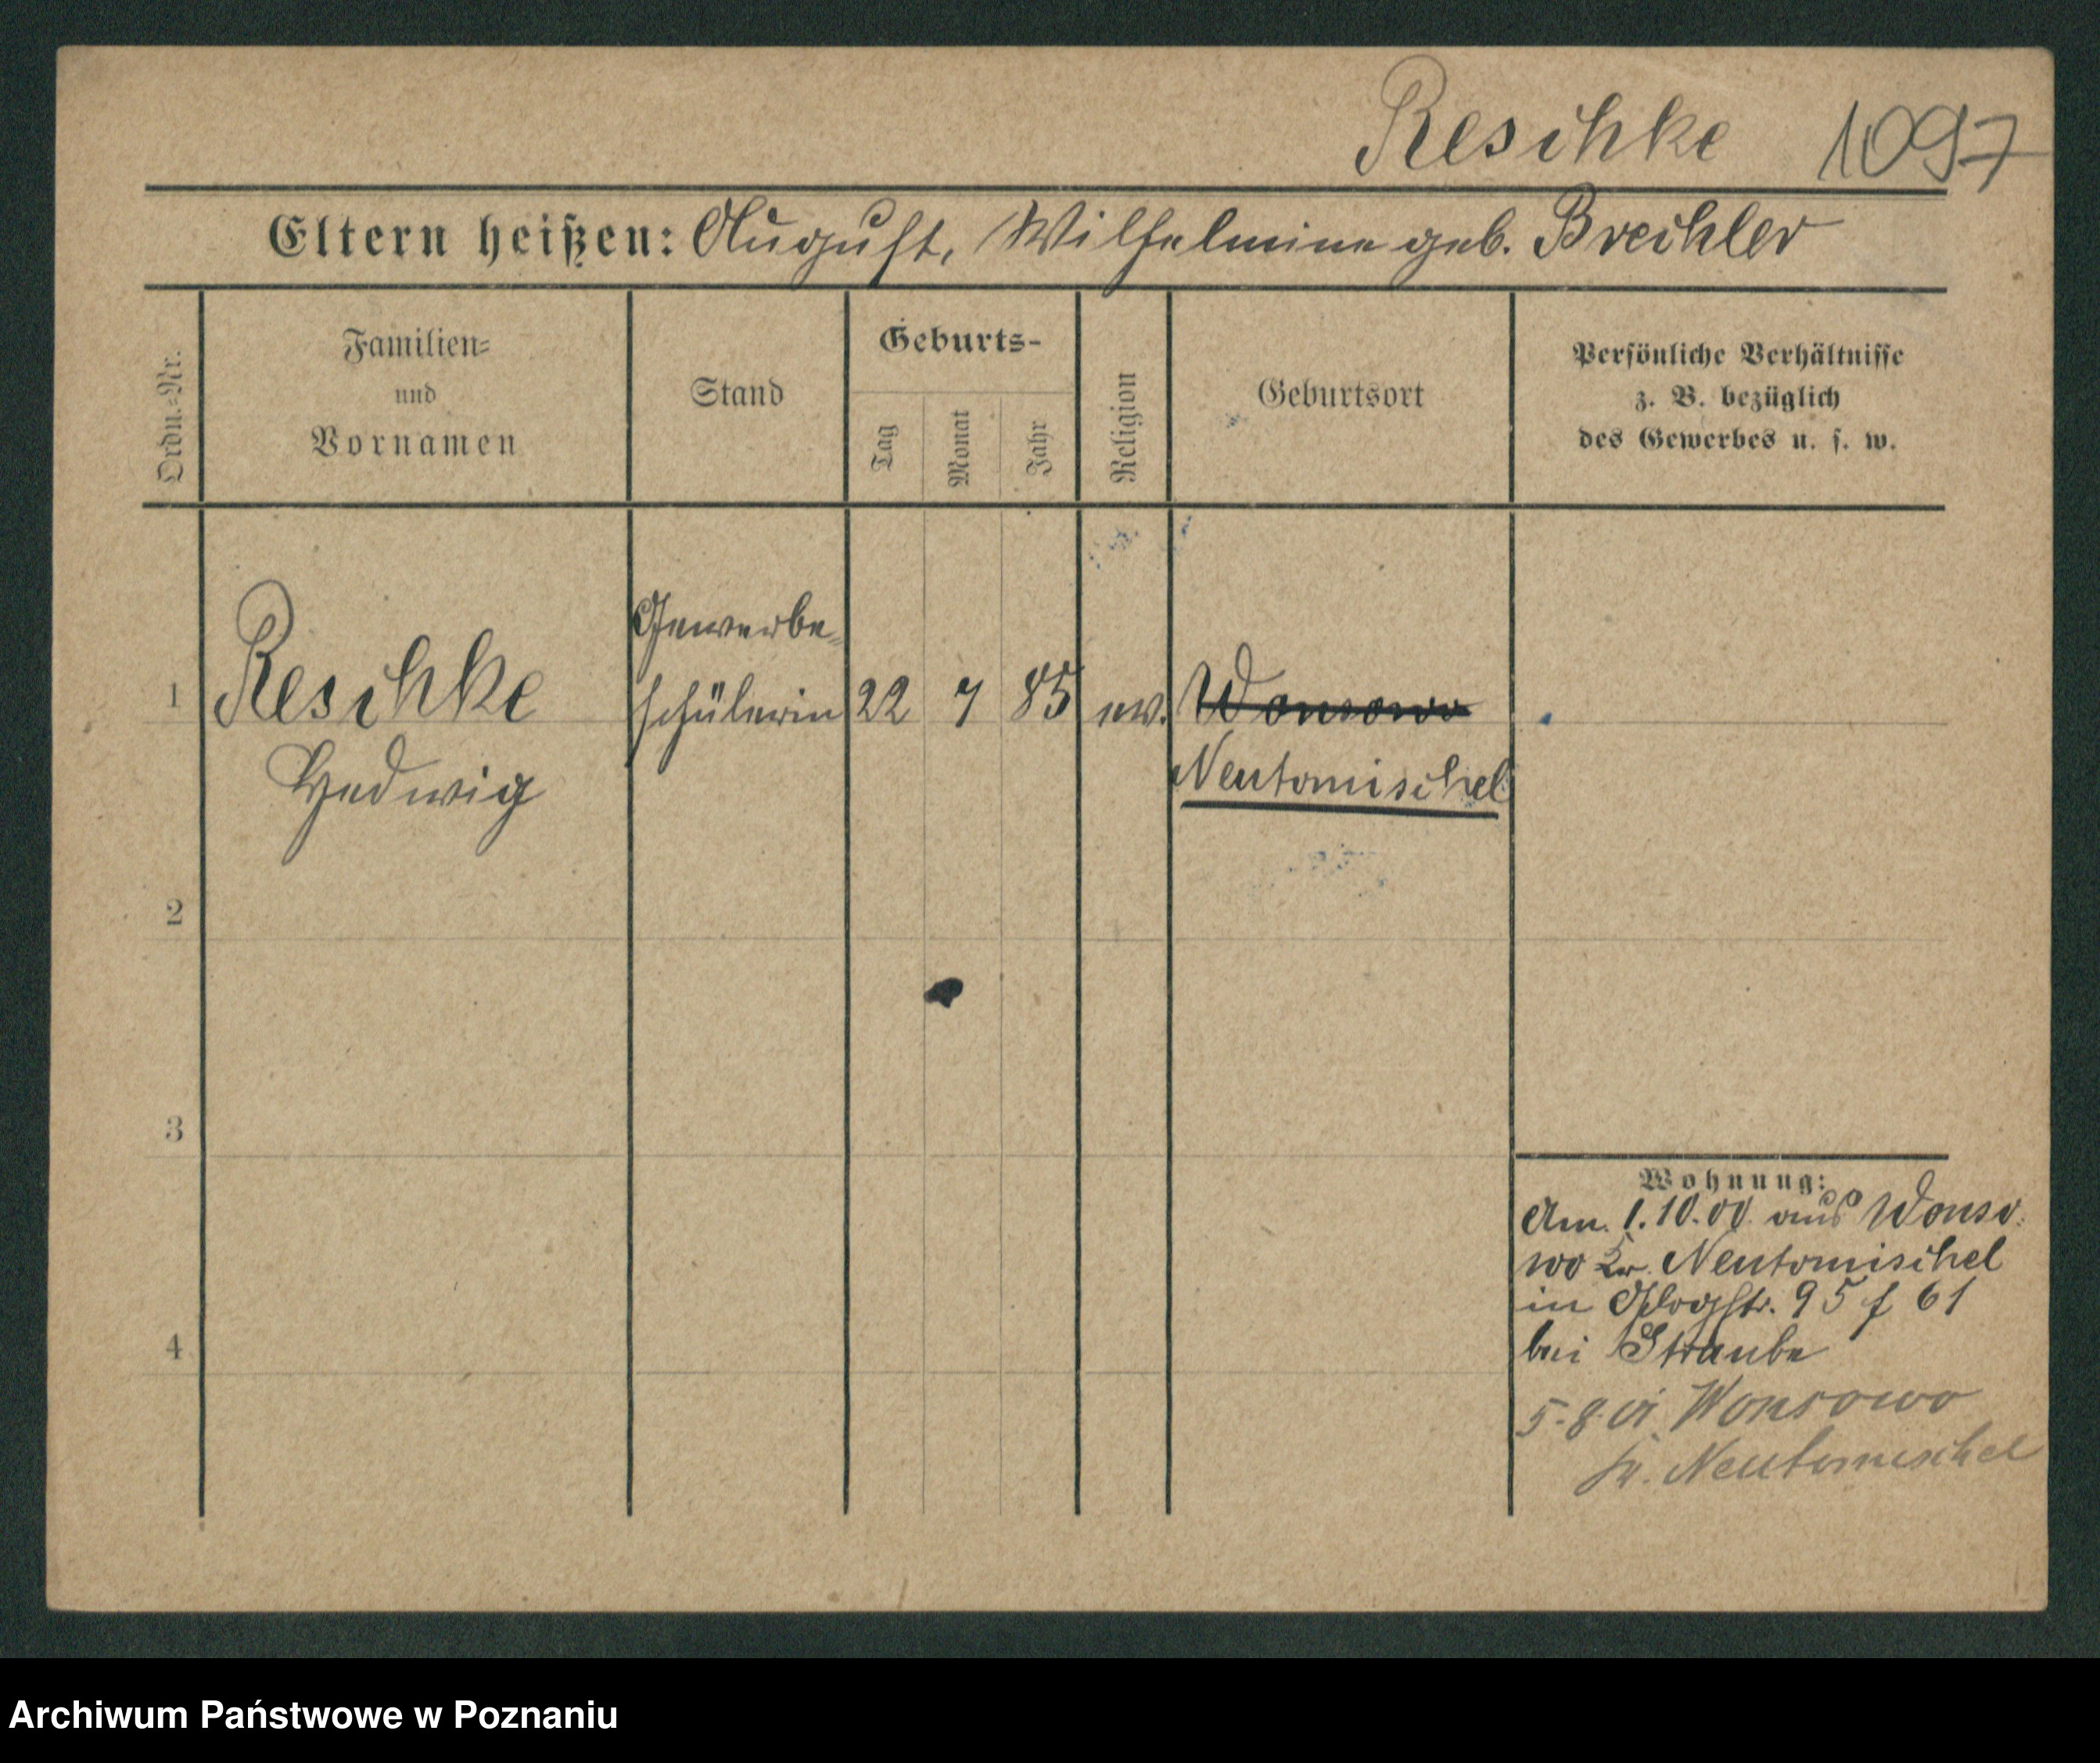 Reschke 1097
Eltern heißen: August, Wilhelmine geb. Brechler
Ordn.-Nr.
Familien-
und
Vornamen
Stand
Geburts-
Tag
Monat
Jahr
Religion
Geburtsort
Persönliche Verhältnisse
z. B. bezüglich
des Gewerbes u. s. w.
Gewerbe-
1 Reschke schülerin 22 7 85 ev. Wonsowo
Hedwig Neutomischel
2
3
4
Wohnung:
Am 1.10.00 aus Wonso-
wo Kr. Neutomischel
in Glogstr. 95 f 61
bei Straube
5.8.01 Wonsowo
Kr. Neutomischel
Archiwum Państwowe w Poznaniu